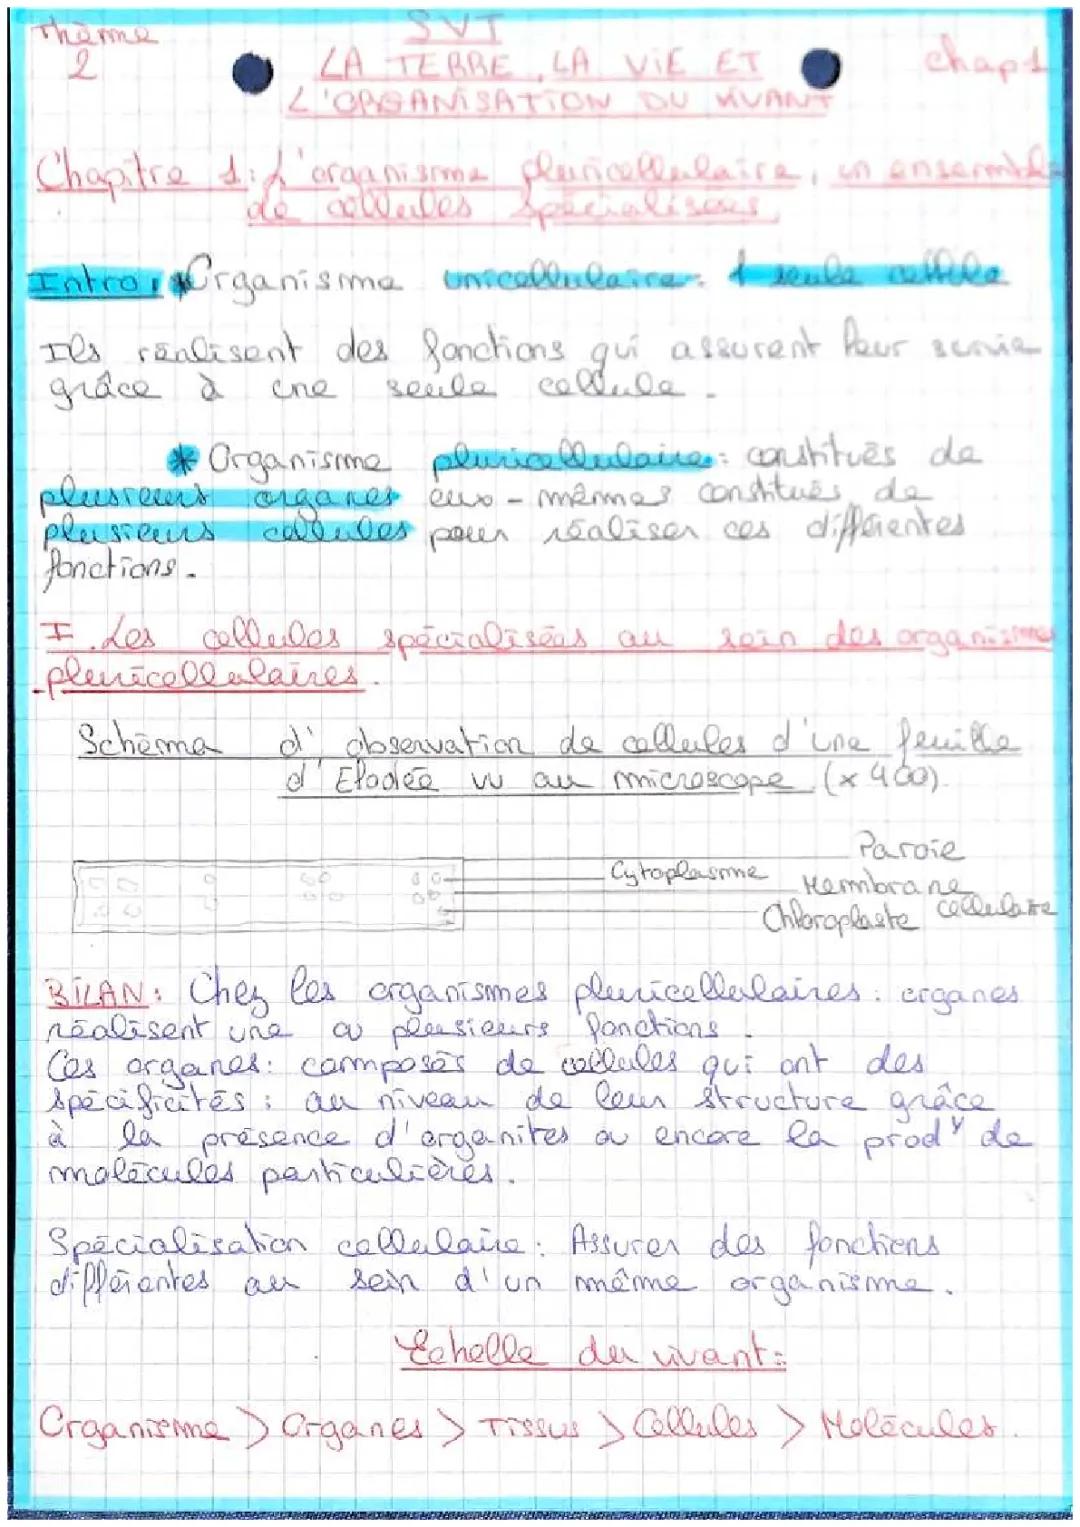 Thème
2
SVT
LA TERRE, LA ViE ET
L'ORGANiSATiON DU ViVANT
chap1
Chapitre 1: L'organisme pluricellulaire, un ensemble
de cellules spécialisées.
Intro: *Organisme unicellulaire: 1 seule cellule
Ils réalisent des fonctions qui assurent leur survie
grâce à une seule cellule.
* Organisme pluricellulaire: constitués de
plusieurs organes eux-mêmes constitués de
plusieurs cellules pour réaliser ces différentes
fonctions.
I. Les cellules spécialisées au sein des organismes
pluricellulaires.
Schéma d'observation de cellules d'une feuille
d'Elodée vu au microscope (x 400).
Paroie
Cytoplasme
Membrane
cellulaire
Chloroplaste
BiLAN: Chez les organismes pluricellulaires: organes
réalisent une ou plusieurs fonctions.
Ces organes: composés de cellules qui ont des
spécificités: au niveau de leur structure grâce
à la présence d'organites ou encore la prod° de
molécules particulières.
Spécialisation cellulaire: Assurer des fonctions
différentes au sein d'un même organisme.
Echelle du vivant:
Organisme > Organes > Tissus > Cellules > Molécules.